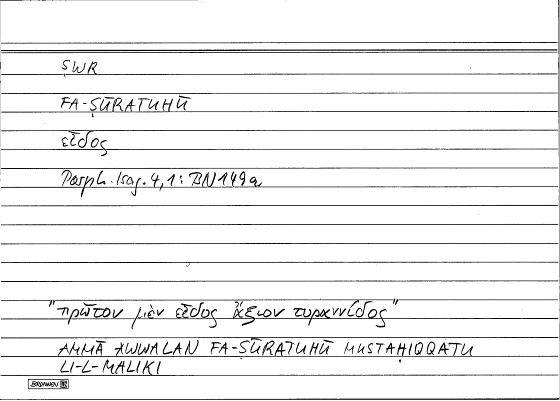 ṢWR
FA-ṢŪRATUHŪ
εἶδος
Porph. Isag. 4,1: BN149a
"πρῶτον μὲν εἶδος ἄξιον τυραννίδος"
AMMĀ AWWALAN FA-ṢŪRATUHŪ MUSTAḤIQQATU
LI-L-MALIKI
BRUNNEN